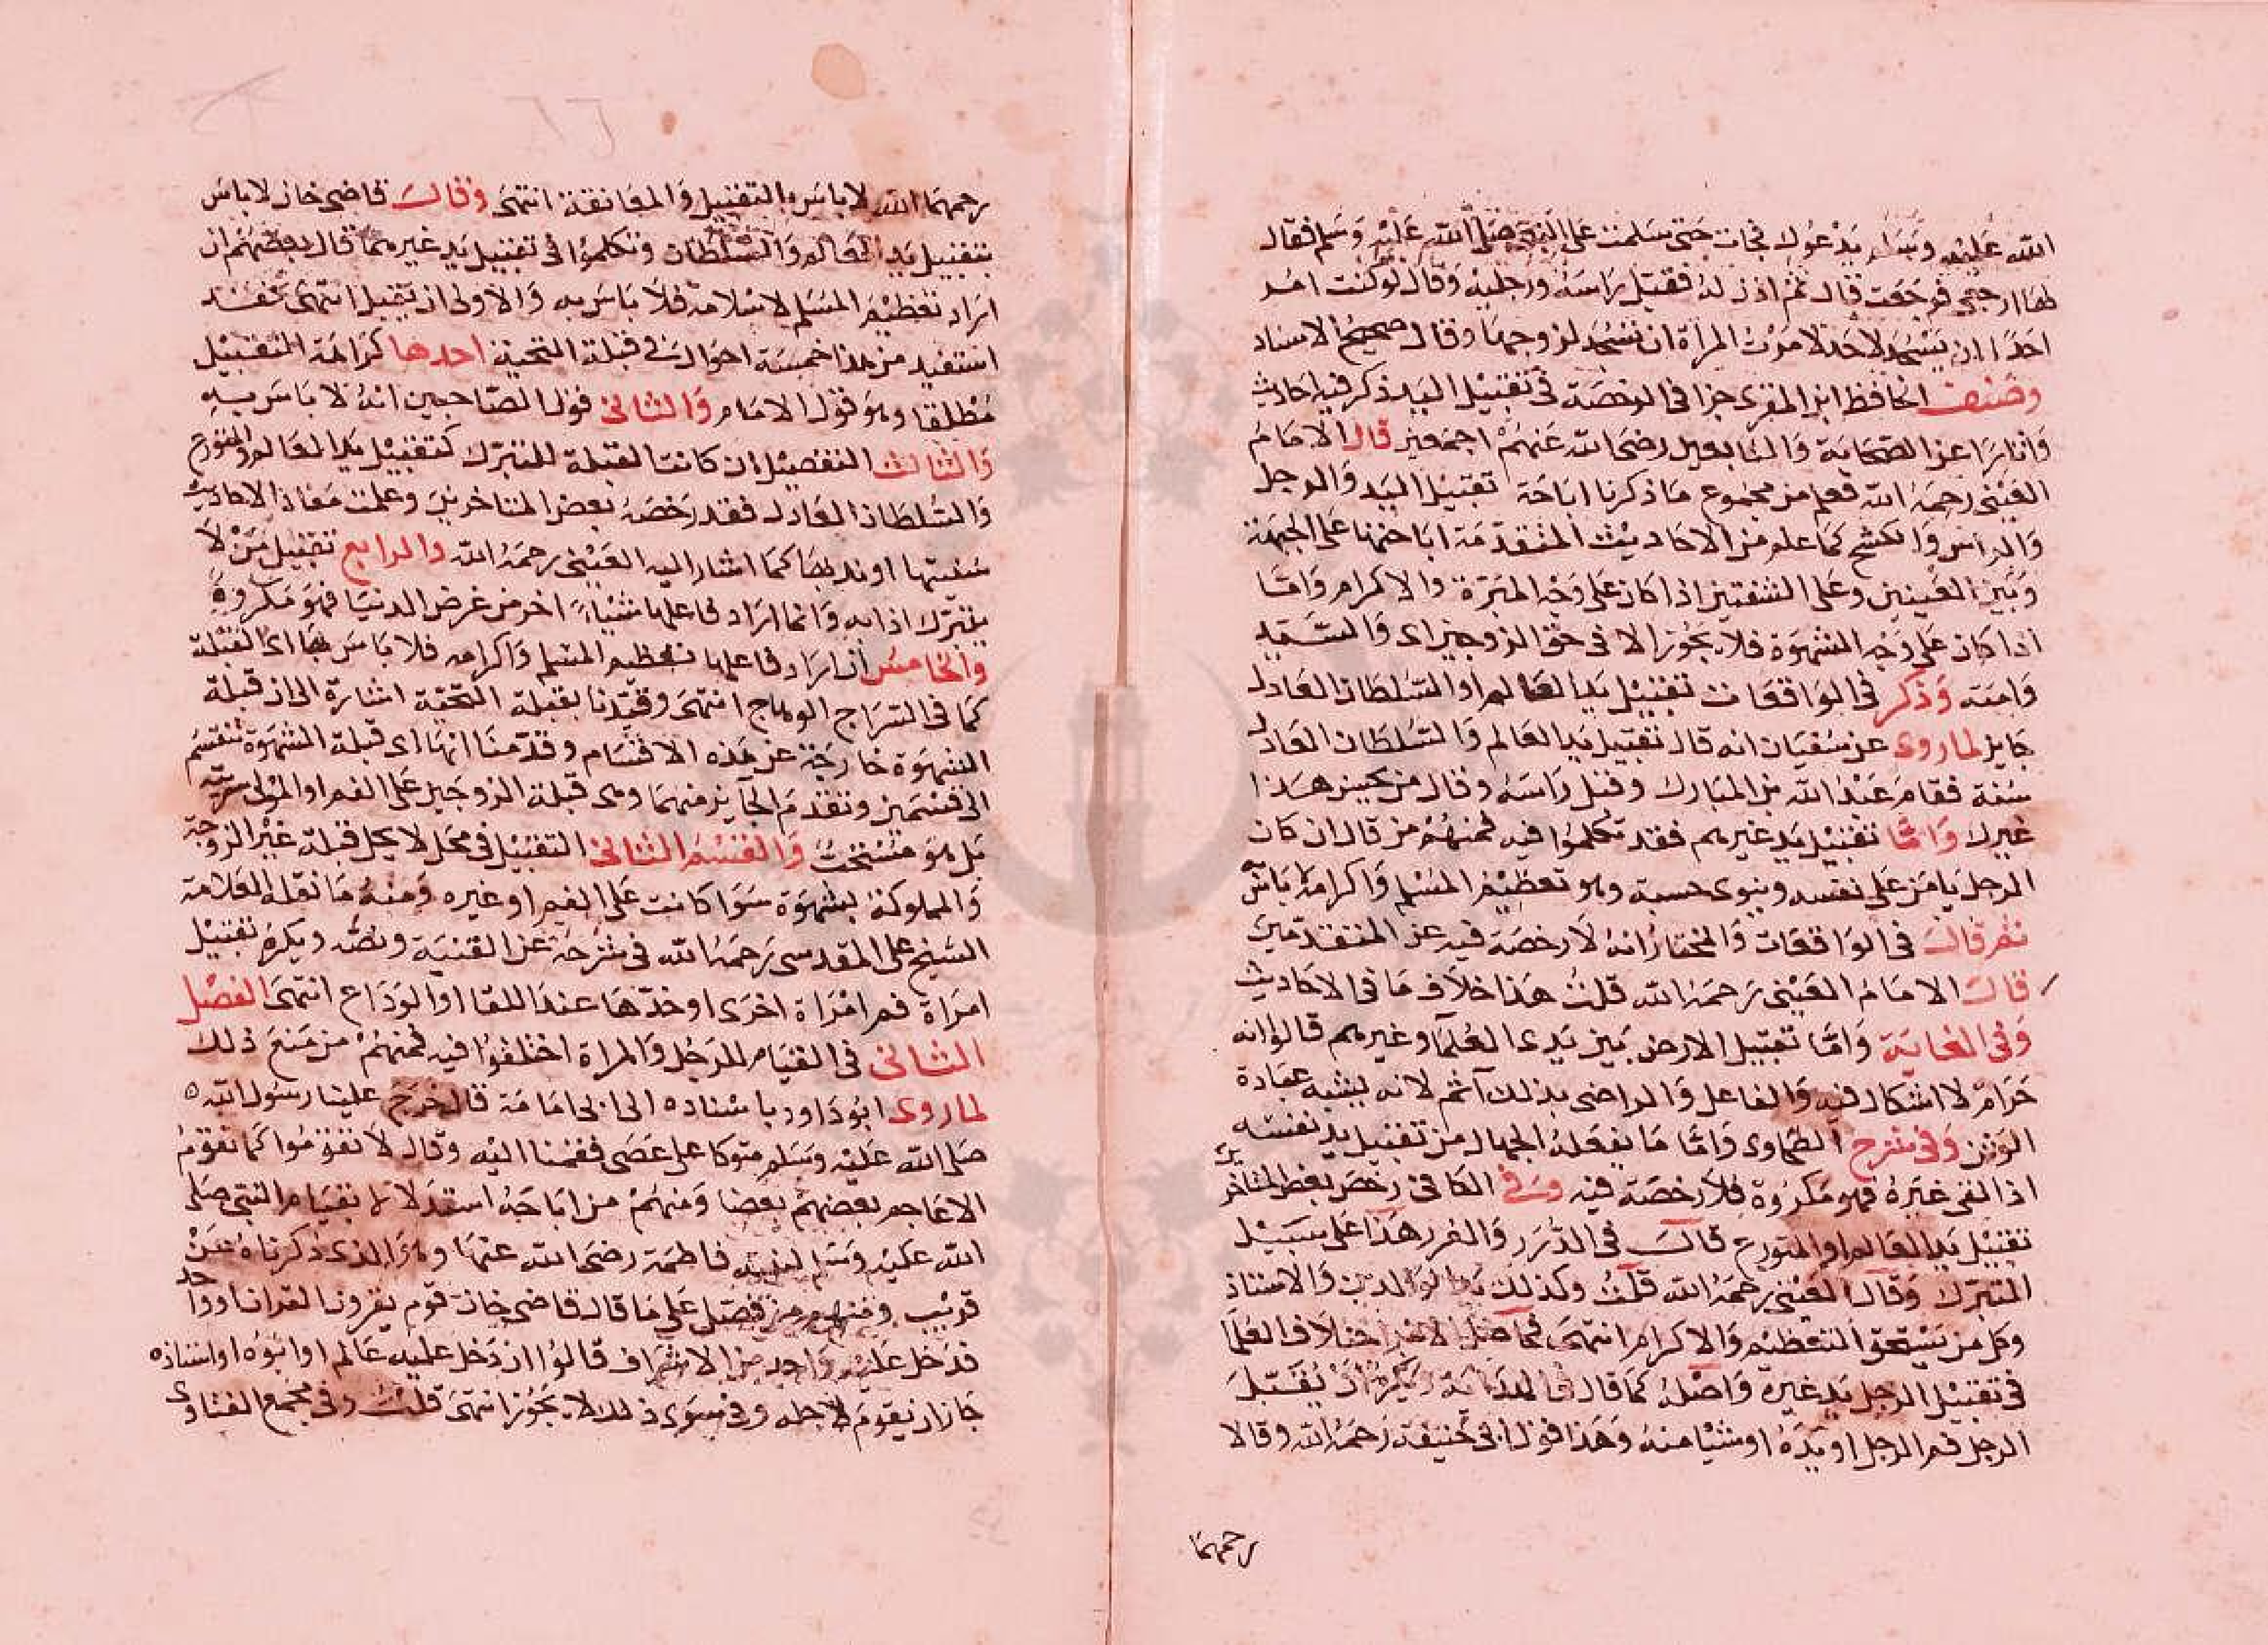 الله عليه وسلم يدعوك فجات حتى سلمت على النبي صلى الله عليه وسلم فقال
لها ارجعي فرجعت قال ثم اذن له فقبل راسه ورجليه وقال لو كنت امر
احدا ان يسجد لاحد لامرت المراة ان تسجد لزوجها وقال صحيح الاسناد
وصنف الحافظ ابن المقري جزا في الرخصة في تقبيل اليد ذكر فيه احاديث
واثارا عن الصحابة والتابعين رضي الله عنهم اجمعين قال الامام
العيني رحمه الله فعلم من مجموع ما ذكرنا اباحة تقبيل اليد والرجل
والراس والكشح كما علم من الاحاديث المتقدمة اباحتها على الجبهة
وبين العينين وعلى الشفتين اذا كان على وجه المبرة والاكرام واما
اذا كان على وجه الشهوة فلا يجوز الا في حق الزوجين اي والسيد
وامته وذكر في الواقعات تقبيل يد العالم او السلطان العادل
جايز لما روى عن سفيان انه قال تقبيل يد العالم والسلطان العادل
سنة فقام عبد الله بن المبارك وقبل راسه وقال من يحسن هذا
غيرك واما تقبيل يد غيرهم فقد تكلموا فيه فمنهم من قال ان كان
الرجل يامن على نفسه وينوي حسبة وهو تعظيم المسلم واكرامه لاباس
ثم قال في الواقعات والمختار انه لا رخصة فيه عن المتقدمين
قال الامام العيني رحمه الله قلت هذا خلاف ما في الاحاديث
وفي الغاية واما تقبيل الارض بين يدي العلما وغيرهم قالوا انه
حرام لا اشكال فيه والفاعل والراضي بذلك آثم لانه يشبه عبادة
الوثن وفي شرح الطحاوي واما ما يفعله الجهال من تقبيل يد نفسه
اذا لقي غيره فهو مكروه فلا رخصة فيه وفي الكافي رخص بعض المتاخرين
تقبيل يد العالم او المتورع قال في الدرر والغرر هذا على سبيل
التبرك وقال العيني رحمه الله قلت وكذلك يد الوالدين والاستاذ
وكل من يستحق التعظيم والاكرام انتهى اختلاف العلما
في تقبيل الرجل يد غيره واصله كما قال في الهداية ويكره ان يقبل
الرجل فم الرجل او يده او شيا منه وهذا قول ابي حنيفة رحمه الله وقالا
رحمهما
رحمهما الله لاباس بالتقبيل والمعانقة انتهى وقال قاضي خان لاباس
بتقبيل يد العالم والسلطان وتكلموا في تقبيل يد غيرهما قال بعضهم ان
اراد تعظيم المسلم لاسلامه فلا باس به والاولى ان يقبل انتهى فقد
استفيد من هذا خمسة احوال في قبلة التحية احدها كراهة التقبيل
مطلقا وهو قول الامام والثاني قول الصاحبين انه لا باس به
والثالث التفصيل ان كانت القبلة للتبرك كتقبيل يد العالم والمتورع
والسلطان العادل فقد رخصه بعض المتاخرين وعلمت مفاد الاحاديث
سنيتها او ندبها كما اشار اليه العيني رحمه الله والرابع تقبيل من لا
يتبرك اذا به وانما اراد فاعلها شيئا اخر من غرض الدنيا فهو مكروه
والخامس ان اراد فاعلها تعظيم المسلم واكرامه فلا باس بها اي القبلة
كما في السراج الوهاج انتهى وقيدنا بقبلة التحية اشارة الى ان قبلة
الشهوة خارجة عن هذه الاقسام وقدمنا انها اي قبلة الشهوة تنقسم
الى قسمين وتقدم الجايز منهما وهى قبلة الزوجين على الفم او المولى سريته
بل هو مستحب والقسم الثاني التقبيل في محل لا يحل قبلة غير الزوجة
والمملوكة بشهوة سوا كانت على الفم او غيره ومنه ما نقله العلامة
الشيخ على المقدسي رحمه الله في شرحه عن القنية ونصه ويكره تقبيل
امراة فم امراة اخرى او خدها عند اللقا او الوداع انتهى الفصل
الثاني في القيام للرجل والمراة اختلفوا فيه فمنهم من منع ذلك
لما روى ابو داود باسناده الى ابي امامة قال خرج علينا رسول الله
صلى الله عليه وسلم متوكا على عصى فقمنا اليه وقال لا تقوموا كما تقوم
الاعاجم بعضهم بعضا ومنهم من اباحه استدلالا بقيام النبي صلى
الله عليه وسلم لبنته فاطمة رضي الله عنها وهو الذي ذكرناه عن
قريب ومنهم من فصل على ما قال قاضي خان قوم يقرون القران او واحد
فدخل عليه واحد من الاشراف قالوا ان دخل عليه عالم او ابوه او استاذه
جاز ان يقوم لاجله وفي سوى ذلك لا يجوز انتهى قلت وفي مجمع الفتاوى